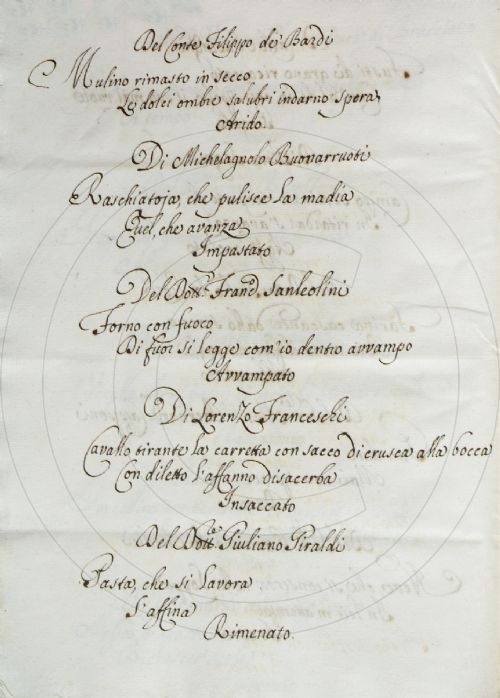 Del Conte Filippo de Bardi
Mulino rimasto in secco
Le dolci ombre salubri indarno spera
Arido.
Di Michelagnolo Buonarruoti
Raschiatoja, che pulisce la madia
Quel, che avanza
Impastato
Del Dott.e Franc.o Sanleolini
Forno con fuoco
Di fuor si legge com'io dentro avvampo
Avvampato
Di Lorenzo Franceschi
Cavallo tirante la carretta con sacco di crusca alla bocca
Con diletto l'affanno disacerba
Insaccato
Del Dott.e Giuliano Giraldi
Pasta, che si lavora
S'affina
Rimenato.